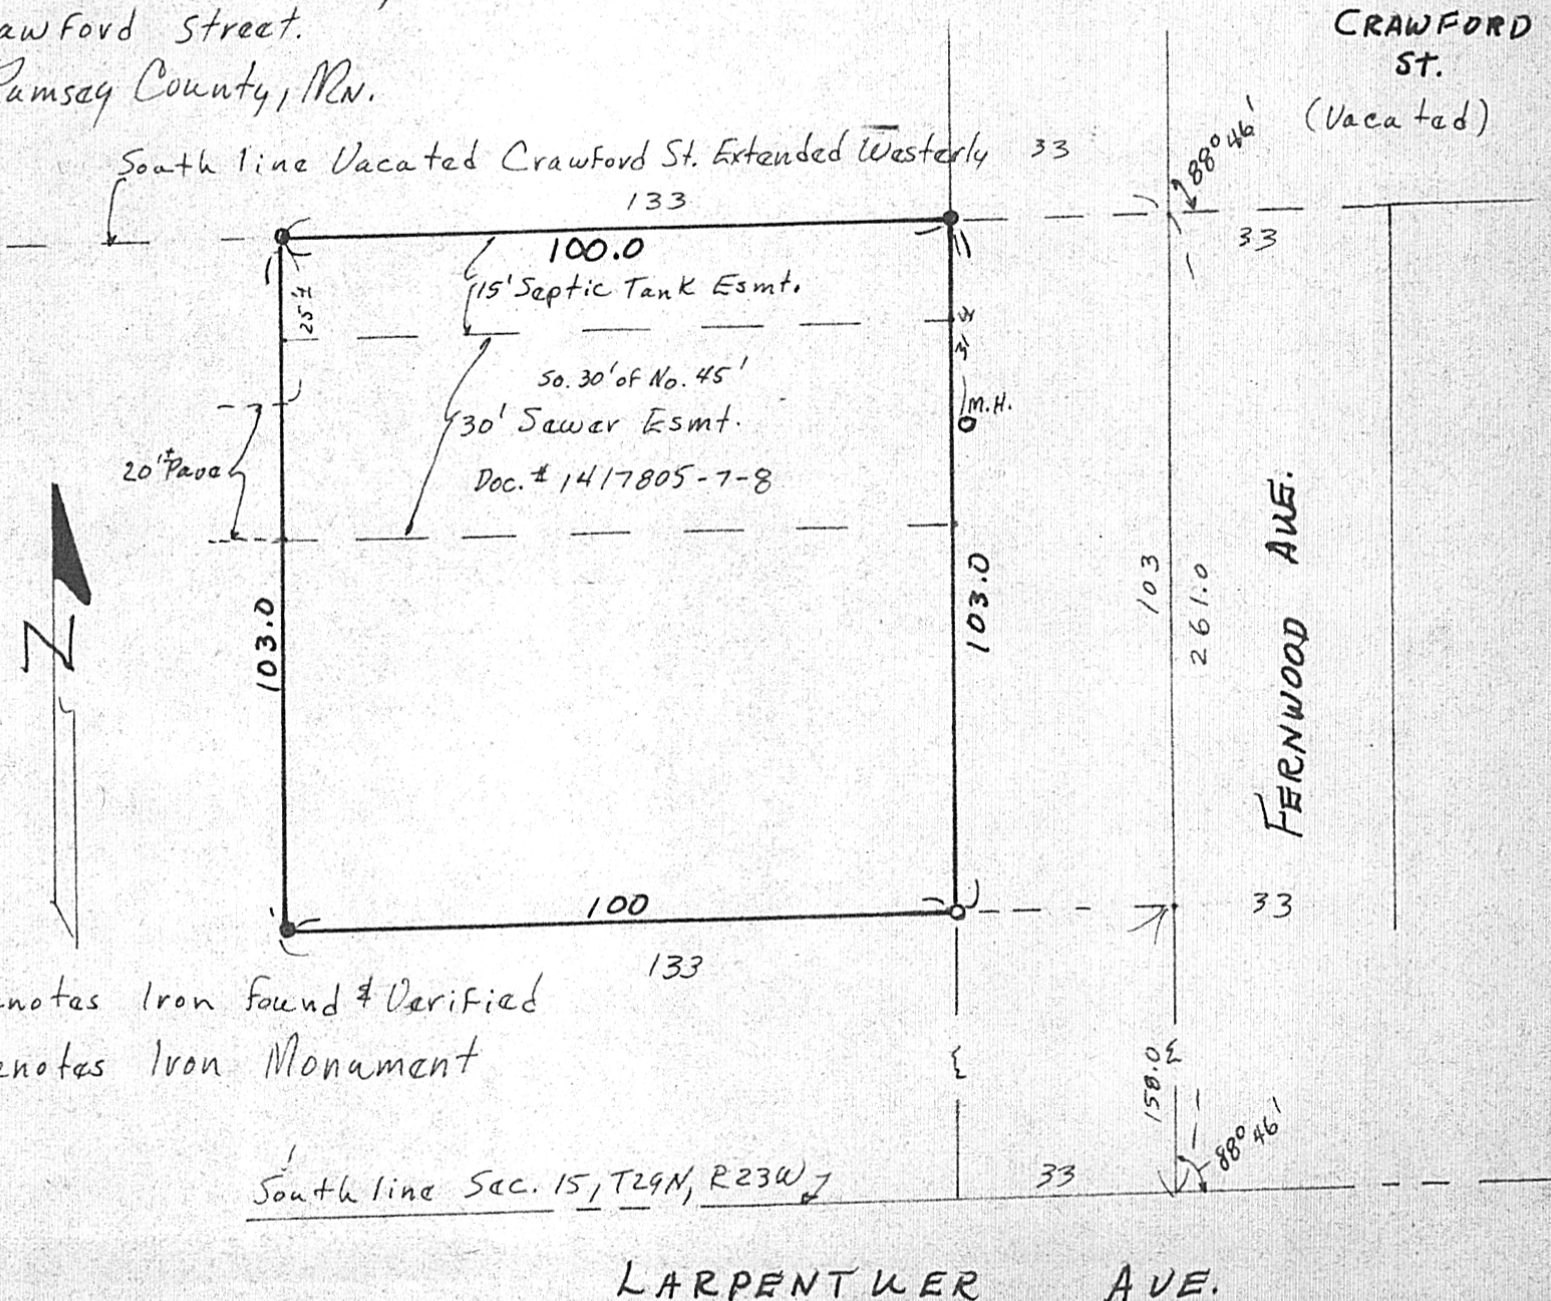 awford Street.
Ramsey County, MN.
CRAWFORD
St.
(Vacated)
South line Vacated Crawford St. Extended Westerly
33
88° 46'
133
100.0
33
15' Septic Tank Esmt.
25±
So. 30' of No. 45'
30' Sewer Esmt.
Doc. # 1417805-7-8
M.H.
20'± Pave
N
103.0
103.0
103
261.0
FERNWOOD AVE.
100
33
133
enotes Iron found & Verified
enotes Iron Monument
158.0
88° 46'
South line Sec. 15, T29N, R23W
33
LARPENTUER AVE.